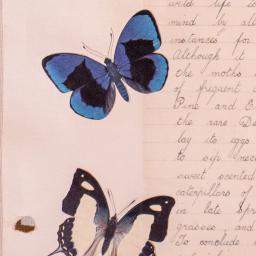 wild life to
mind by all
instances for
Although it
the moths
of frequent
Pine and E
the rare De
lay its eggs
to sip nec
sweet scented
caterpillars of
in late Spr
grasses and
To conclude